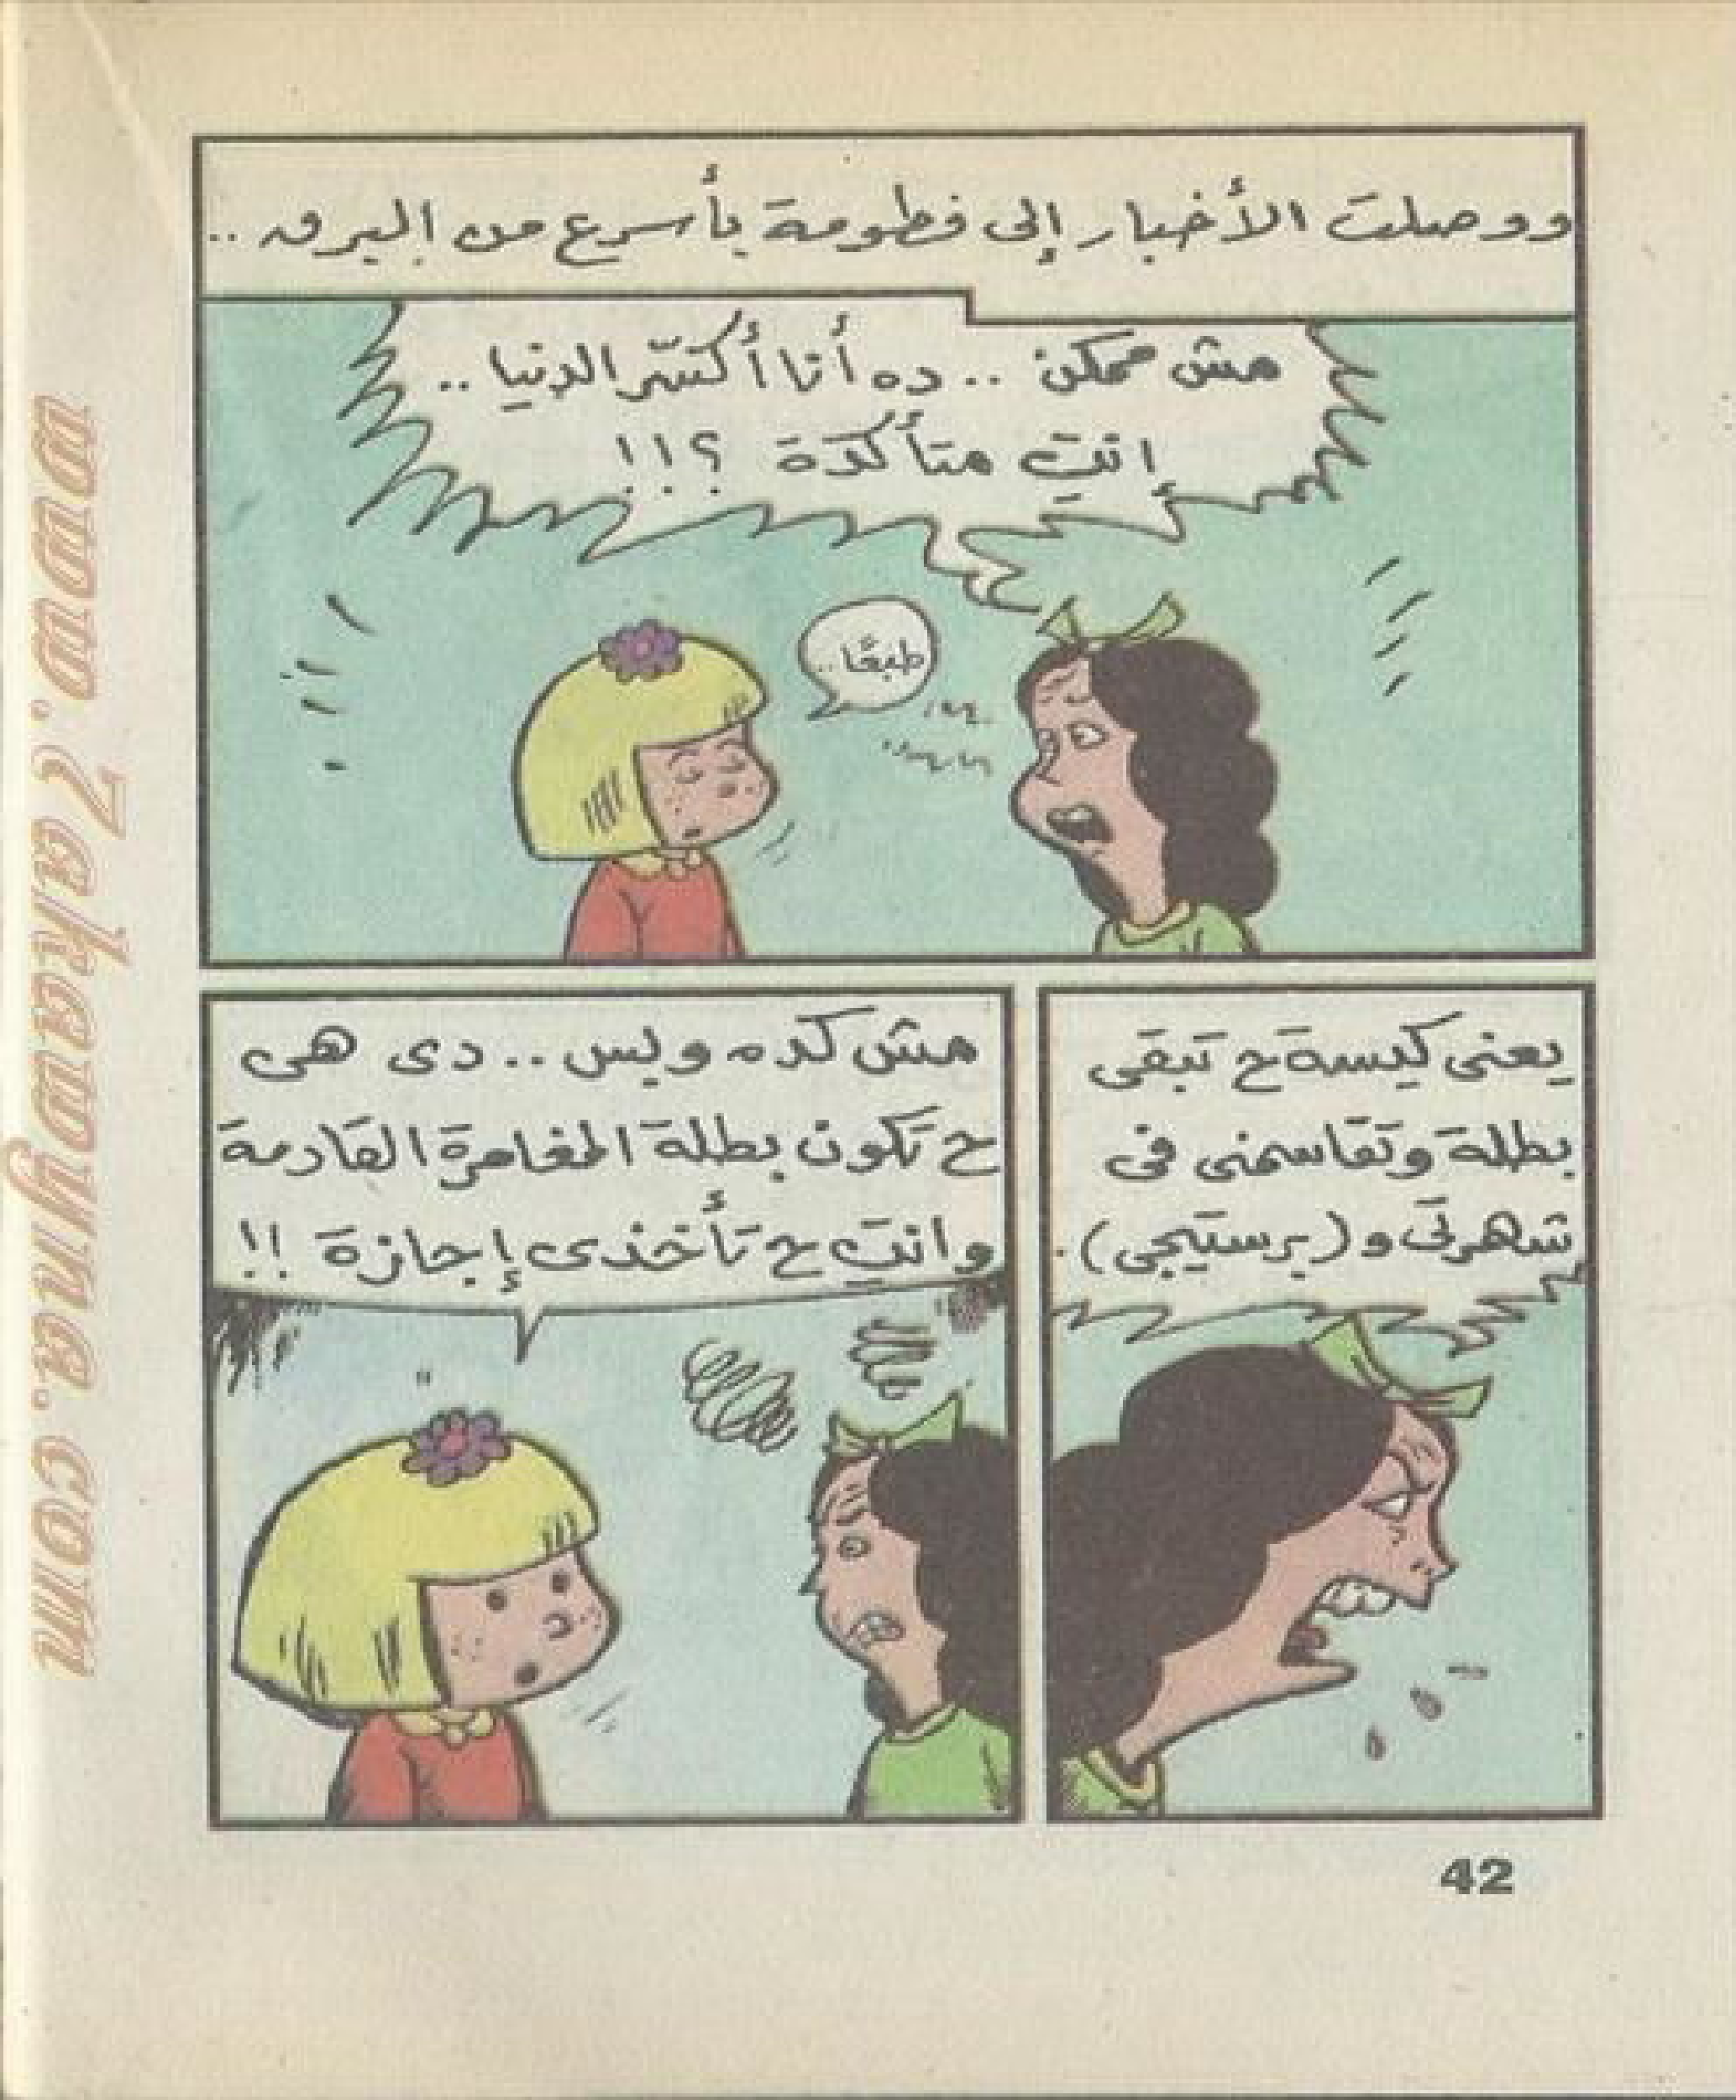 ووصلت الأخبار إلى فطومة بأسرع من البرق ..
مش ممكن .. ده أنا أكسّر الدنيا ..
إنتِ متأكدة ؟!!
طبعًا ..
يعنى كيسة ح تبقى
بطلة وتقاسمنى فى
شهرتى و (برستيجى) .
مش كده وبس .. دى هى
ح تكون بطلة المغامرة القادمة
وانتِ ح تأخذى إجازة !!
42
www.7akawyna.com